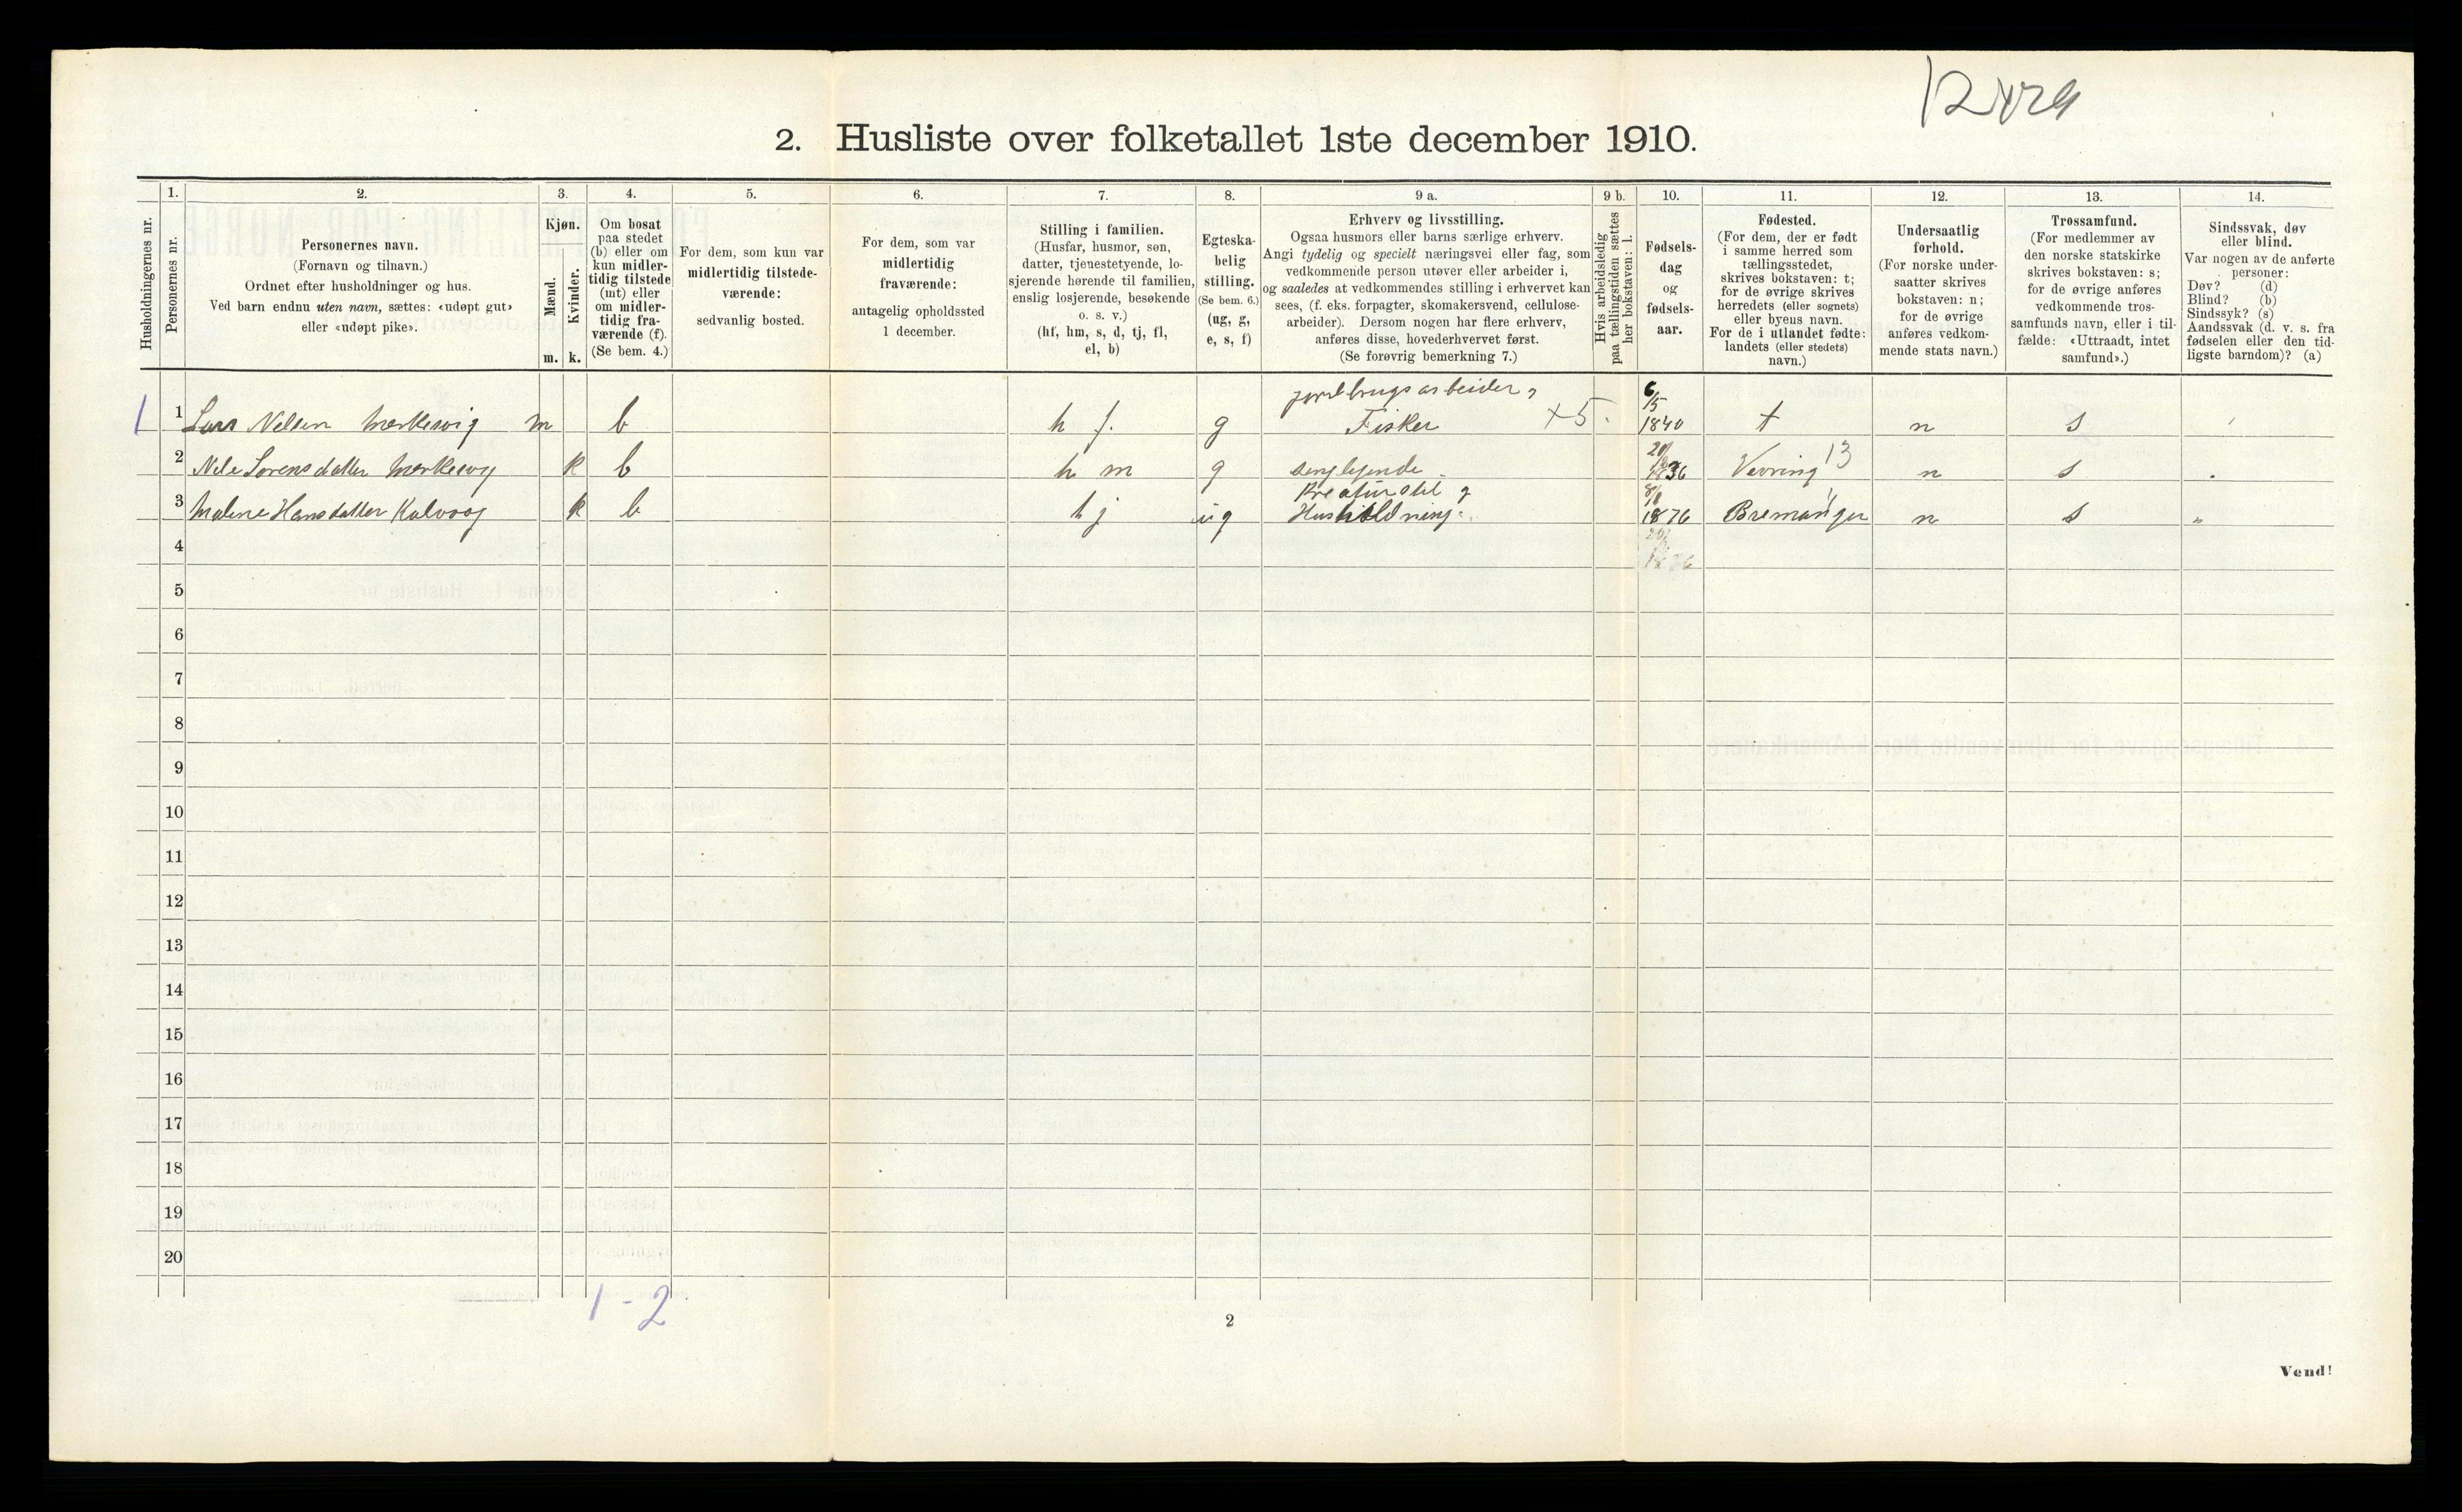 2. Husliste over folketallet 1ste december 1910.
Husholdningernes nr.
1.
Personernes nr.
2.
Personernes navn.
(Fornavn og tilnavn.)
Ordnet efter husholdninger og hus.
Ved barn endnu uten navn, sættes: «udøpt gut»
eller «udøpt pike».
3.
Kjøn.
Mænd.
Kvinder.
m. k.
4.
Om bosat
paa stedet
(b) eller om
kun midler-
tidig tilstede
(mt) eller
om midler-
tidig fra-
værende (f).
(Se bem. 4.)
5.
For dem, som kun var
midlertidig tilstede-
værende:
sedvanlig bosted.
6.
For dem, som var
midlertidig
fraværende:
antagelig opholdssted
1 december.
7.
Stilling i familien.
(Husfar, husmor, søn,
datter, tjenestetyende, lo-
sjerende hørende til familien,
enslig losjerende, besøkende
o. s. v.)
(hf, hm, s, d, tj, fl,
el, b)
8.
Egteska-
belig
stilling.
(Se bem. 6.)
(ug, g,
e, s, f)
9 a.
Erhverv og livsstilling.
Ogsaa husmors eller barns særlige erhverv.
Angi tydelig og specielt næringsvei eller fag, som
vedkommende person utøver eller arbeider i,
og saaledes at vedkommendes stilling i erhvervet kan
sees, (f. eks. forpagter, skomakersvend, cellulose-
arbeider). Dersom nogen har flere erhverv,
anføres disse, hovederhvervet først.
(Se forøvrig bemerkning 7.)
9 b.
Hvis arbeidsledig
paa tællingstiden sættes
her bokstaven: l.
10.
Fødsels-
dag
og
fødsels-
aar.
11.
Fødested.
(For dem, der er født
i samme herred som
tællingsstedet,
skrives bokstaven: t;
for de øvrige skrives
herredets (eller sognets)
eller byens navn.
For de i utlandet fødte:
landets (eller stedets)
navn.)
12.
Undersaatlig
forhold.
(For norske under-
saatter skrives
bokstaven: n;
for de øvrige
anføres vedkom-
mende stats navn.)
13.
Trossamfund.
(For medlemmer av
den norske statskirke
skrives bokstaven: s;
for de øvrige anføres
vedkommende tros-
samfunds navn, eller i til-
fælde: «Uttraadt, intet
samfund».)
14.
Sindssvak, døv
eller blind.
Var nogen av de anførte
personer:
Døv? (d)
Blind? (b)
Sindssyk? (s)
Aandssvak (d. v. s. fra
fødselen eller den tid-
ligste barndom)? (a)
jordbrugsarbeider,
1 1 Lars Nelsen Merkesvig m b h f. g Fisker +5. 6/5 1840 t n s
2 Nele Sorensdatter Merkesvig k b h m g sengligende 1836 Vevring 13 n s
Kreaturstel og
3 Malene Hansdatter Kalvaag k b t j ug Husholdning 1876 Bremanger n s "
4
5
6
7
8
9
10
11
12
13
14
15
16
17
18
19
20
1 - 2
2
Vend!